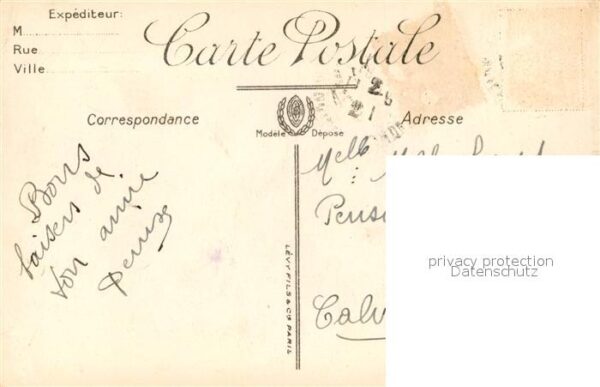 Expéditeur:
M
Rue
Ville
Carte Postale
Correspondance
Modèle Déposé
Adresse
Bons
baisers de
ton amie
Denise
LÉVY FILS & Cie PARIS
Melle
Pensi
Calv
privacy protection
Datenschutz